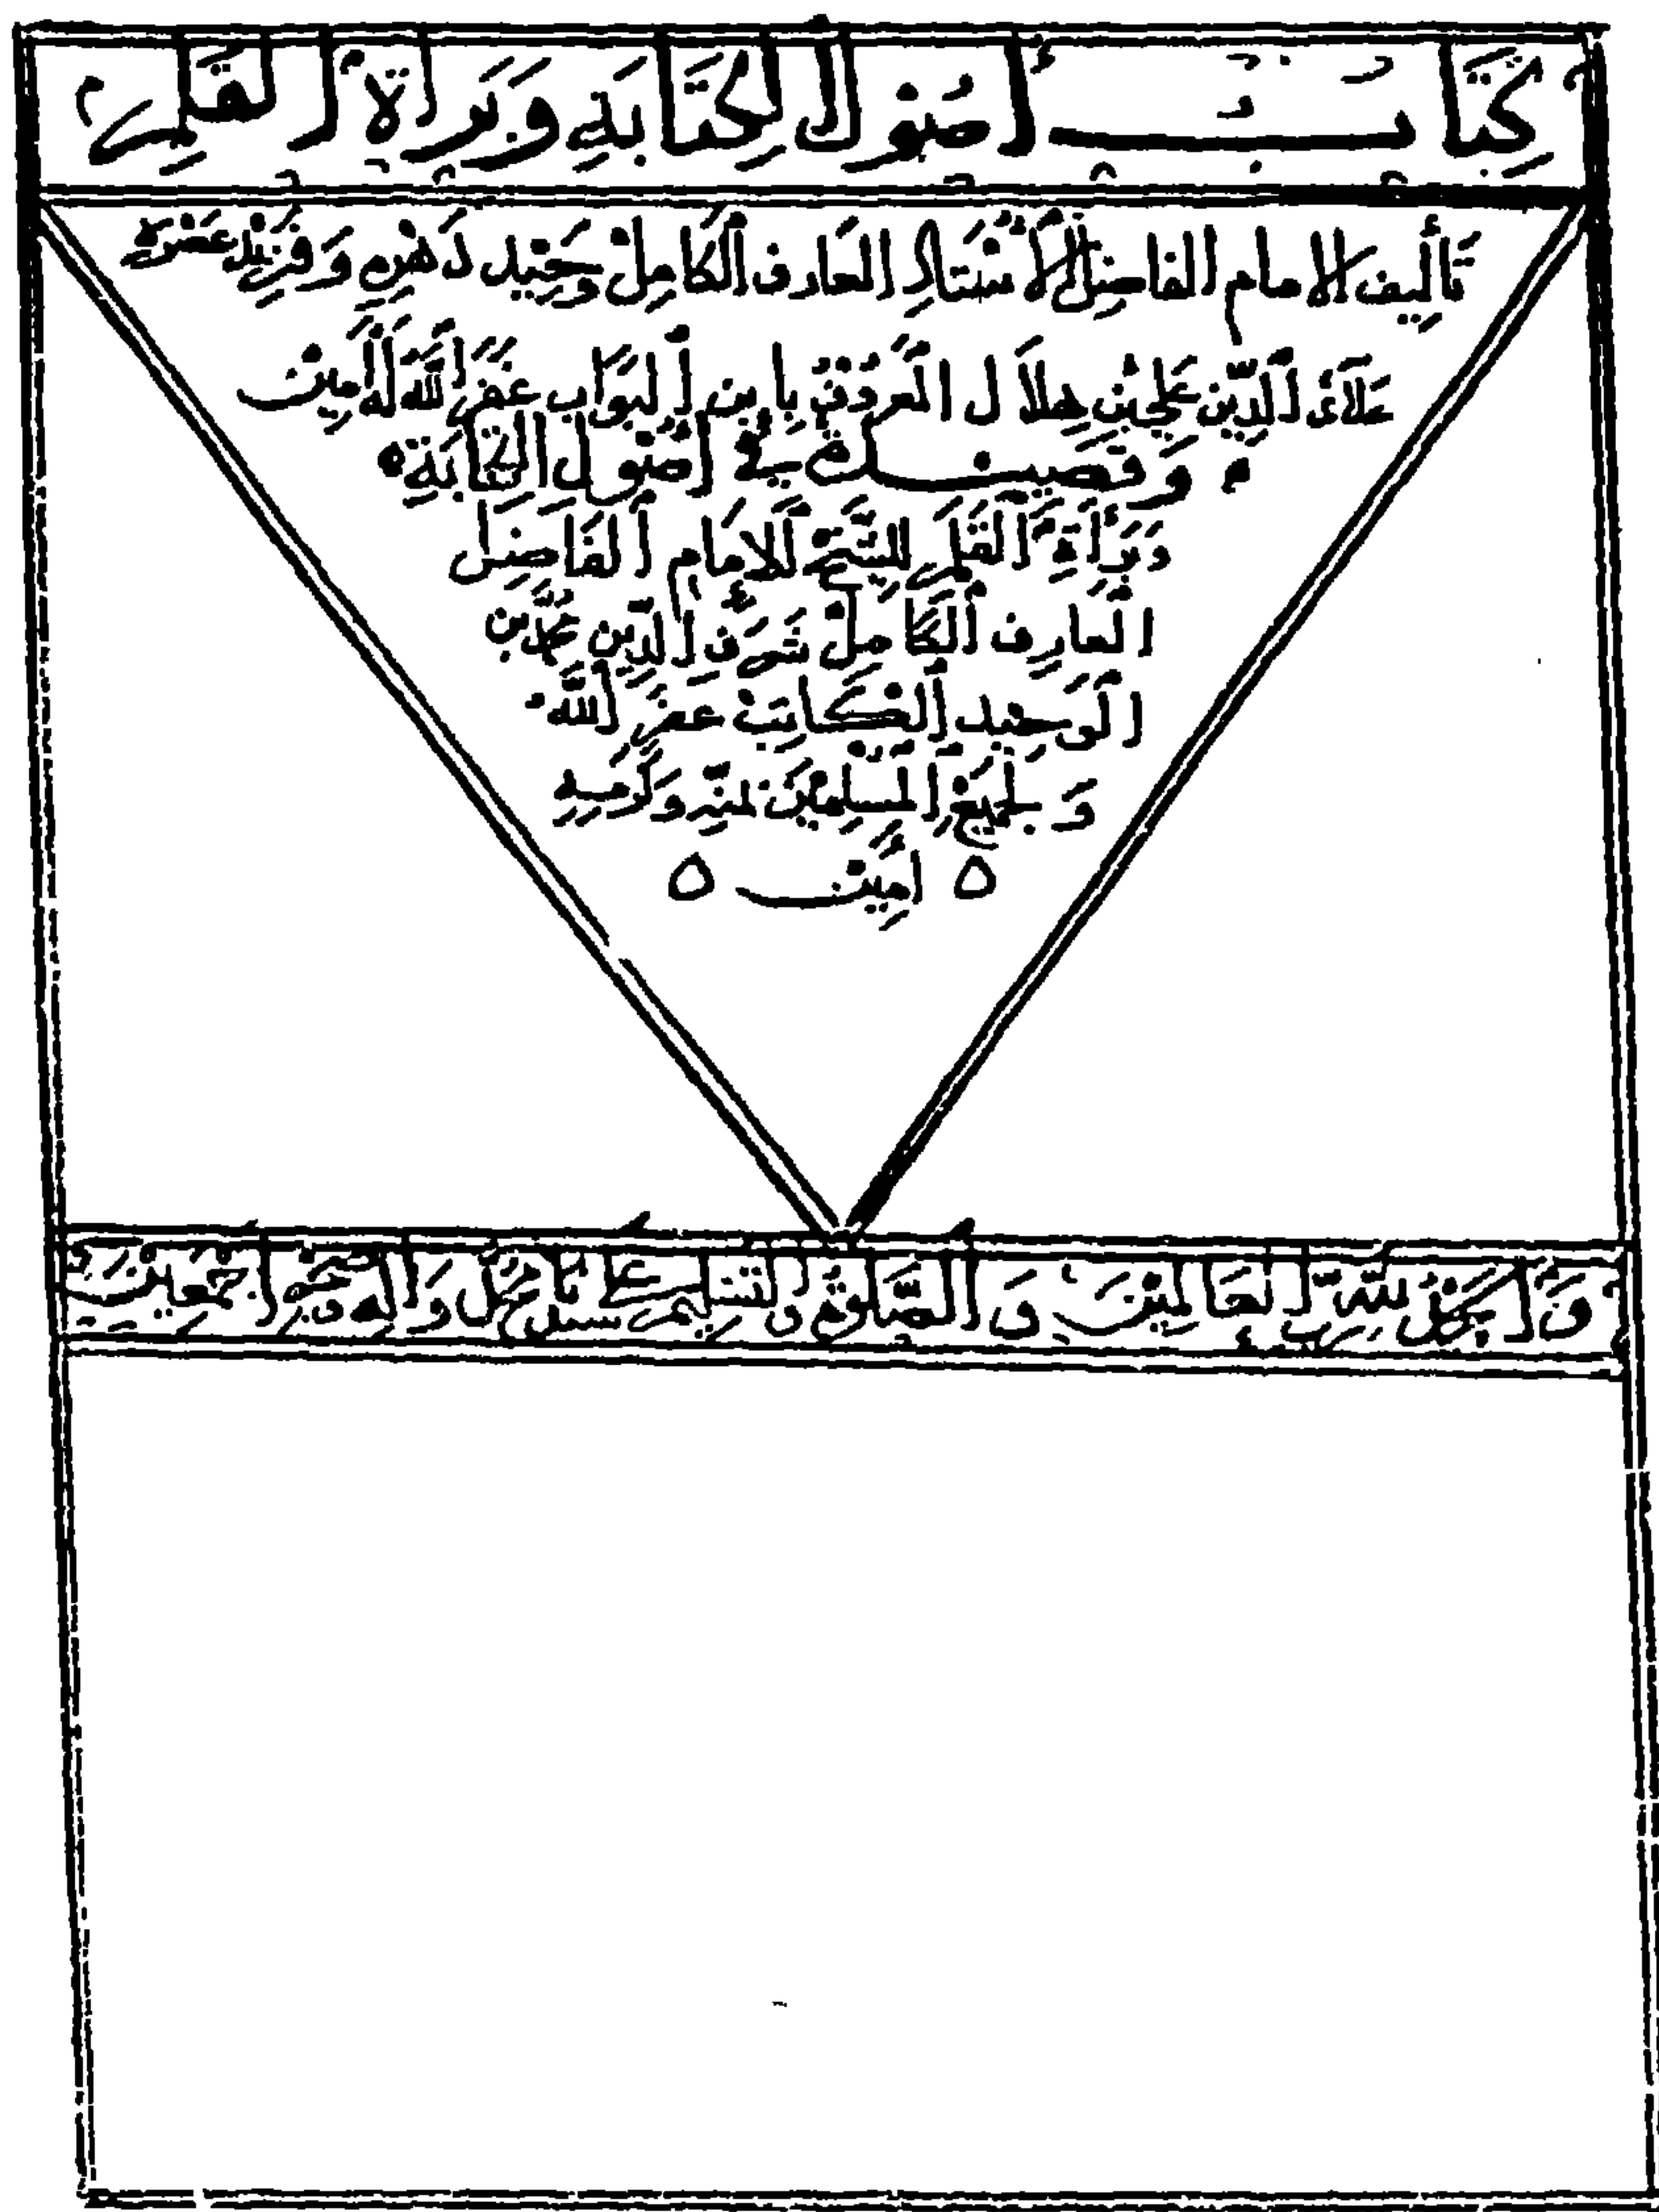 كِتَابُ أُصُولِ الكِتَابَةِ وَبَرَاةِ القَلَمِ
تَأْلِيف الامام الفاضِل الأُسْتَادِ العَارف الكَامِلْ وَحِيد دَهْرِهِ وَفَرِيْدِ عَصْرِهِ
عَلَاءُ الدِّين عَلِي بْن هِلَال المَعرُوف بِابن البَوَّاب غَفَرَ اللّٰهُ لَهُ آمِين
وَقَصِيدَة فِي أُصُول الكِتَابَةِ
وَبَرَاةِ القَلَمِ لِلشَّيْخ الإمَام الفَاضِل
العَارِف الكَامِلْ شَرَف الدِّين مُحَمَّد بْن
الوَحِيد الكَاتِبْ غَفَرَ اللّٰهُ
وَلِجَمِيع المُسْلِمِينَ بِمَنِّهِ وَكَرَمِهِ
آمِين
وَالحَمْدُ لِلّٰهِ رَبِّ العَالَمِين وَالصَّلَوةُ وَالتَّسْلِيمُ عَلَى سَيِّدِنَا مُحَمَّد وَآلِهِ وَصَحْبِهِ أَجْمَعِين